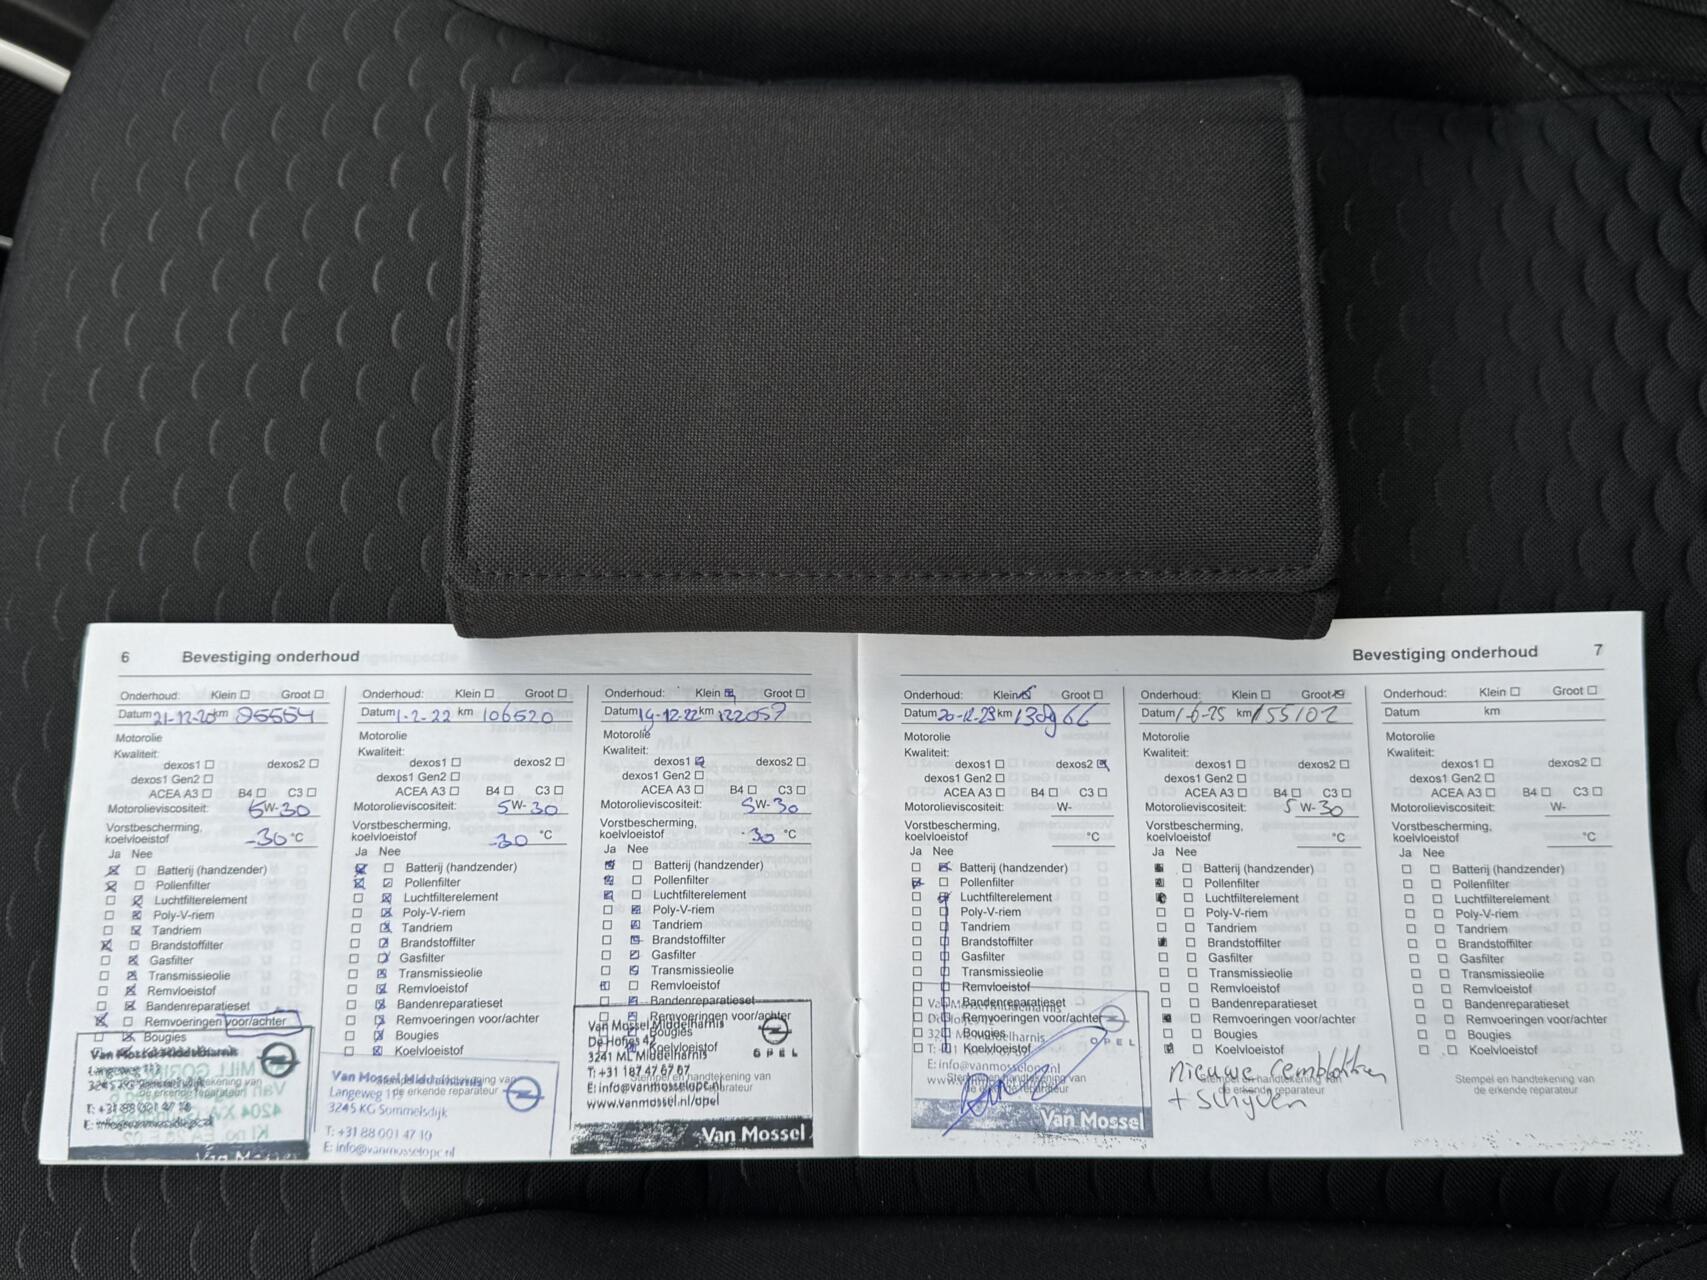 6 Bevestiging onderhoud
Onderhoud: Klein Groot
Datum 21-12-20 km 95554
Motorolie
Kwaliteit:
dexos1 dexos2
dexos1 Gen2
ACEA A3 B4 C3
Motorolieviscositeit: 5W-30
Vorstbescherming,
koelvloeistof -30 °C
Ja Nee
Batterij (handzender)
Pollenfilter
Luchtfilterelement
Poly-V-riem
Tandriem
Brandstoffilter
Gasfilter
Transmissieolie
Remvloeistof
Bandenreparatieset
Remvoeringen voor/achter
Bougies
Van Mossel Middelharnis
Onderhoud: Klein Groot
Datum 1-2-22 km 106520
Motorolie
Kwaliteit:
dexos1 dexos2
dexos1 Gen2
ACEA A3 B4 C3
Motorolieviscositeit: 5W-30
Vorstbescherming,
koelvloeistof -30 °C
Ja Nee
Batterij (handzender)
Pollenfilter
Luchtfilterelement
Poly-V-riem
Tandriem
Brandstoffilter
Gasfilter
Transmissieolie
Remvloeistof
Bandenreparatieset
Remvoeringen voor/achter
Bougies
Koelvloeistof
Van Mossel Middelharnis
Langeweg 113
de erkende reparateur
3245 KG Sommelsdijk
T: +31 88 001 47 10
E: info@vanmosselopc.nl
Onderhoud: Klein Groot
Datum 14-12-22 km 122057
Motorolie
Kwaliteit:
dexos1 dexos2
dexos1 Gen2
ACEA A3 B4 C3
Motorolieviscositeit: 5W-30
Vorstbescherming,
koelvloeistof -30 °C
Ja Nee
Batterij (handzender)
Pollenfilter
Luchtfilterelement
Poly-V-riem
Tandriem
Brandstoffilter
Gasfilter
Transmissieolie
Remvloeistof
Bandenreparatieset
Remvoeringen voor/achter
Bougies
Koelvloeistof
Van Mossel Middelharnis
De Hofjes 42
3241 ML Middelharnis
OPEL
T: +31 187 47 67 67
Stempel en handtekening van
E: info@vanmosselopc.nl
de erkende reparateur
www.vanmossel.nl/opel
Van Mossel
Bevestiging onderhoud 7
Onderhoud: Klein Groot
Datum 20-12-23 km
Motorolie
Kwaliteit:
dexos1 dexos2
dexos1 Gen2
ACEA A3 B4 C3
Motorolieviscositeit: W-
Vorstbescherming,
koelvloeistof °C
Ja Nee
Batterij (handzender)
Pollenfilter
Luchtfilterelement
Poly-V-riem
Tandriem
Brandstoffilter
Gasfilter
Transmissieolie
Remvloeistof
Bandenreparatieset
Remvoeringen voor/achter
Bougies
Koelvloeistof
OPEL
Stempel en handtekening van
de erkende reparateur
Van Mossel
Onderhoud: Klein Groot
Datum 1-6-25 km 155102
Motorolie
Kwaliteit:
dexos1 dexos2
dexos1 Gen2
ACEA A3 B4 C3
Motorolieviscositeit: 5W-30
Vorstbescherming,
koelvloeistof °C
Ja Nee
Batterij (handzender)
Pollenfilter
Luchtfilterelement
Poly-V-riem
Tandriem
Brandstoffilter
Gasfilter
Transmissieolie
Remvloeistof
Bandenreparatieset
Remvoeringen voor/achter
Bougies
Koelvloeistof
nieuwe remblokken
Stempel en handtekening van
+ schijven
de erkende reparateur
Onderhoud: Klein Groot
Datum km
Motorolie
Kwaliteit:
dexos1 dexos2
dexos1 Gen2
ACEA A3 B4 C3
Motorolieviscositeit: W-
Vorstbescherming,
koelvloeistof °C
Ja Nee
Batterij (handzender)
Pollenfilter
Luchtfilterelement
Poly-V-riem
Tandriem
Brandstoffilter
Gasfilter
Transmissieolie
Remvloeistof
Bandenreparatieset
Remvoeringen voor/achter
Bougies
Koelvloeistof
Stempel en handtekening van
de erkende reparateur